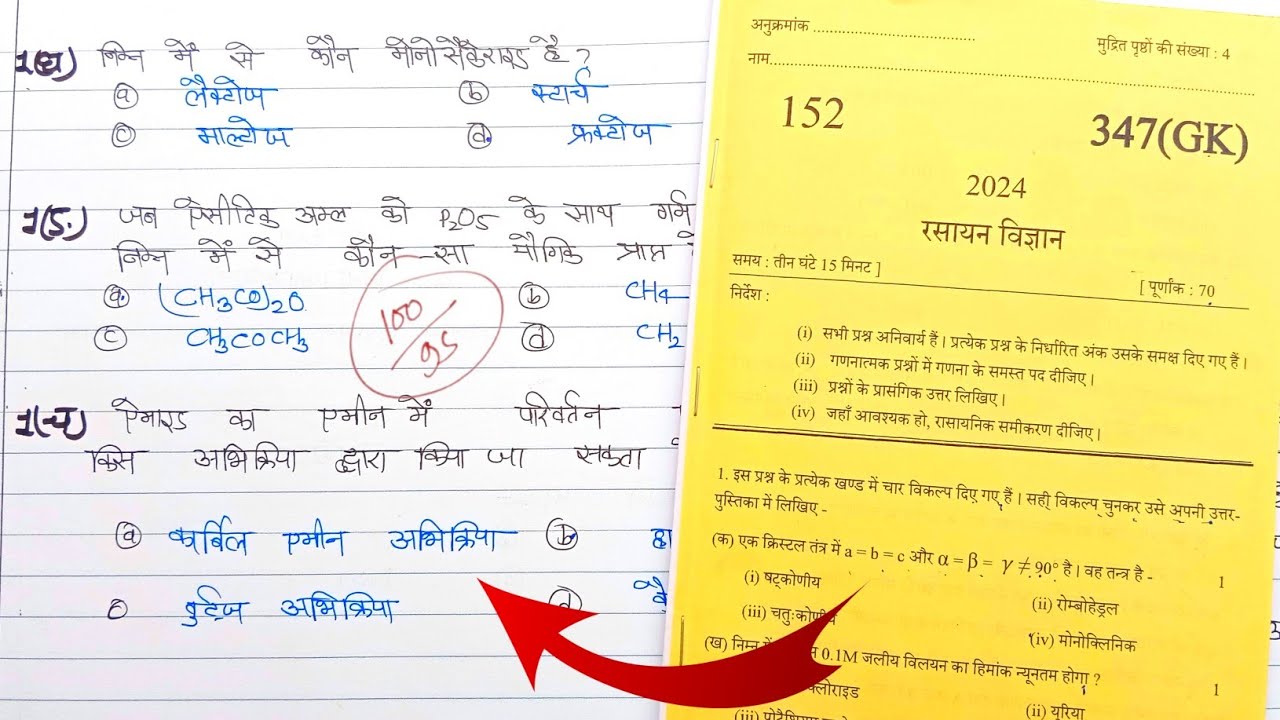 1(घ) निम्न में से कौन मोनोसैकेराइड है ?
ⓐ लैक्टोज ⓑ स्टार्च
ⓒ माल्टोज ⓓ फ्रक्टोज
1(ङ.) जब ऐसीटिक अम्ल को P2O5 के साथ गर्म
निम्न में से कौन-सा यौगिक प्राप्त
ⓐ (CH3CO)2O ⓑ CH4
ⓒ CH3COCH3 ⓓ CH2
100/95
1(च) ऐमाइड का एमीन में परिवर्तन
किस अभिक्रिया द्वारा किया जा सकता
ⓐ कार्बिल एमीन अभिक्रिया ⓑ
c वुर्ट्ज अभिक्रिया ⓓ
अनुक्रमांक ........................................
मुद्रित पृष्ठों की संख्या : 4
नाम........................................
152
347(GK)
2024
रसायन विज्ञान
समय : तीन घंटे 15 मिनट ]
[ पूर्णांक : 70
निर्देश :
(i) सभी प्रश्न अनिवार्य हैं । प्रत्येक प्रश्न के निर्धारित अंक उसके समक्ष दिए गए हैं ।
(ii) गणनात्मक प्रश्नों में गणना के समस्त पद दीजिए ।
(iii) प्रश्नों के प्रासंगिक उत्तर लिखिए ।
(iv) जहाँ आवश्यक हो, रासायनिक समीकरण दीजिए ।
1. इस प्रश्न के प्रत्येक खण्ड में चार विकल्प दिए गए हैं । सही विकल्प चुनकर उसे अपनी उत्तर-
पुस्तिका में लिखिए -
(क) एक क्रिस्टल तंत्र में a = b = c और α = β = γ ≠ 90° है । वह तन्त्र है - 1
(i) षट्कोणीय (ii) रोम्बोहेड्रल
(iii) चतुःकोणीय (iv) मोनोक्लिनिक
(ख) निम्न में 0.1M जलीय विलयन का हिमांक न्यूनतम होगा ? 1
क्लोराइड (ii) यूरिया
(iii)